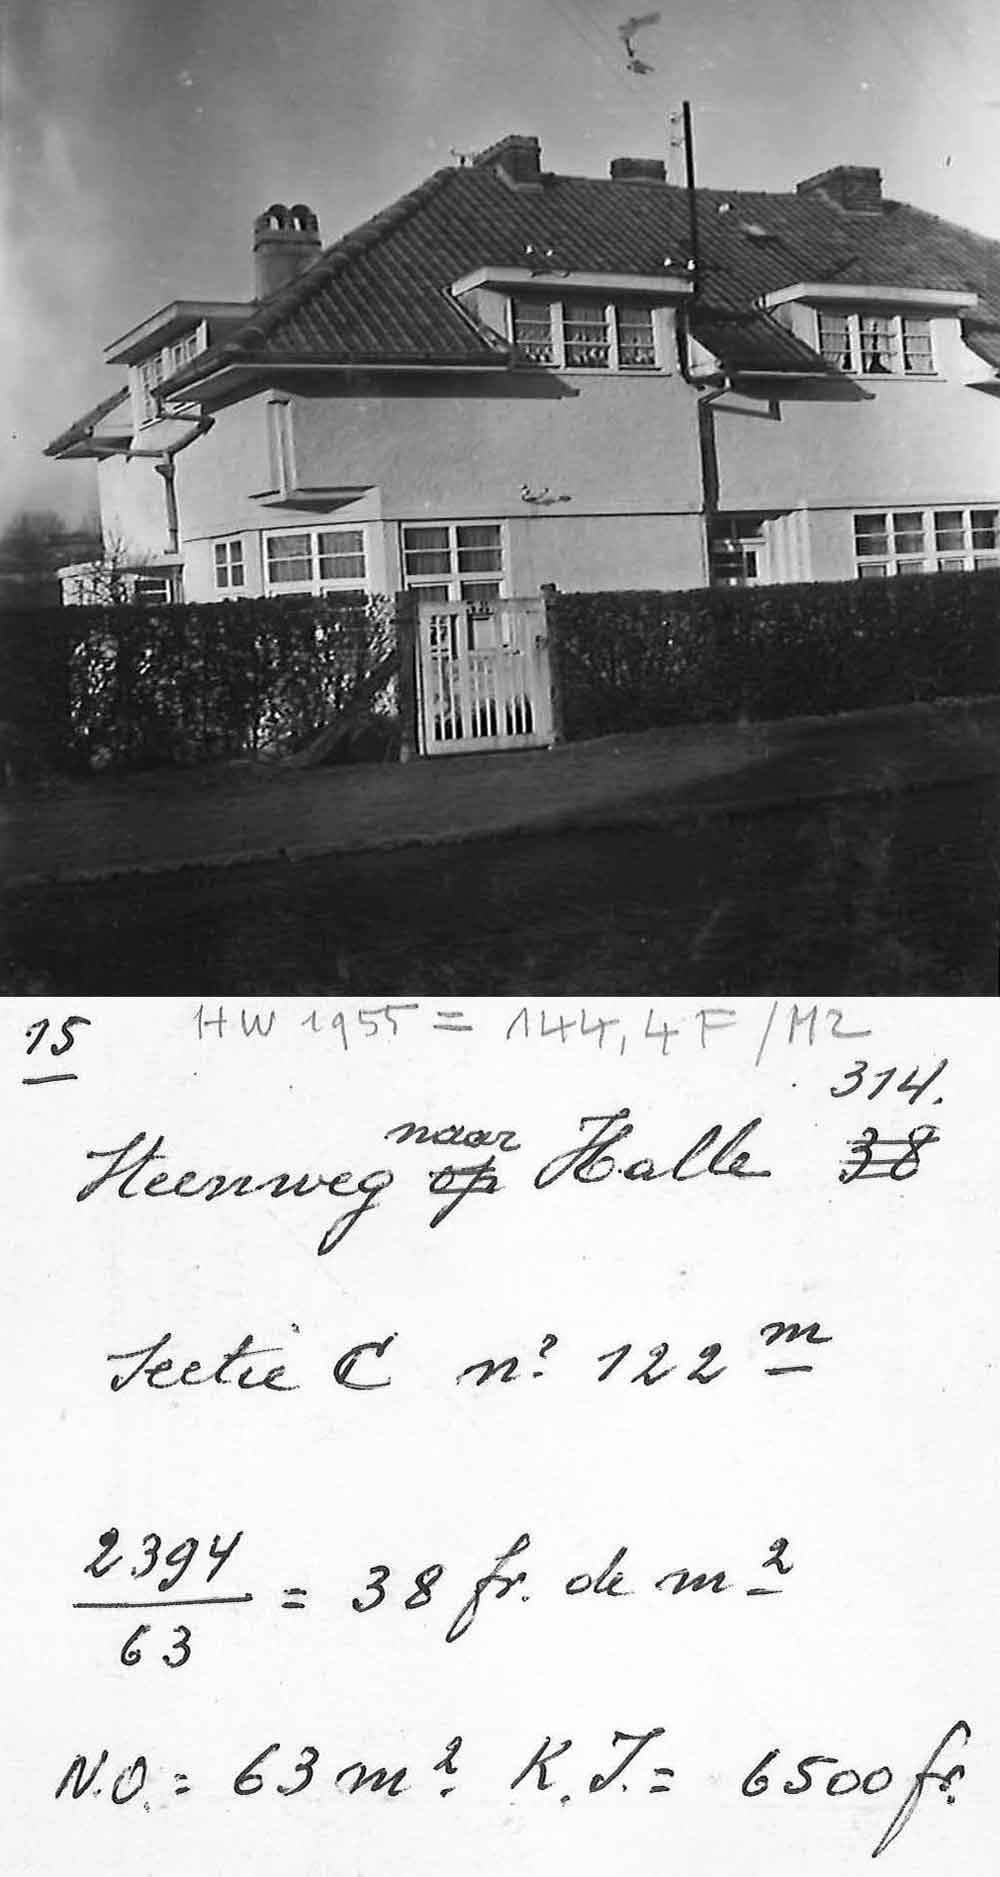 38
15
HW 1955 = 144,4 F/M2
314.
naar
Steenweg op Halle 38
Sectie C nº 122 m
2394
63
= 38 fr. de m²
N.O. = 63 m². K.I. = 6500 fr.